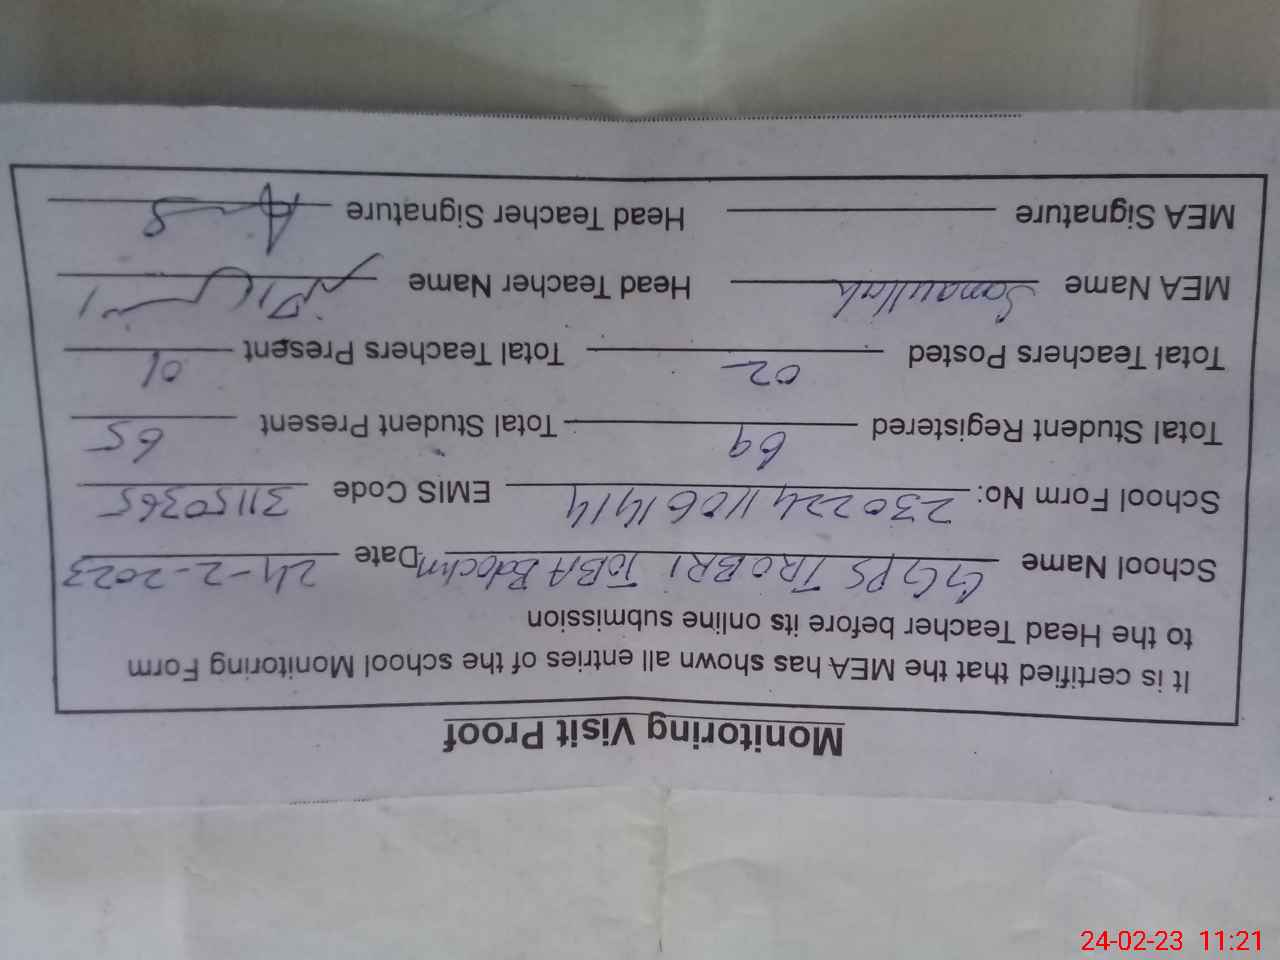 Monitoring Visit Proof
It is certified that the MEA has shown all entries of the school Monitoring Form
to the Head Teacher before its online submission
School Name GGPS TROBRI TOBA Date 24-2-2023
School Form No: 23022411061414 EMIS Code 31150365
Total Student Registered 69 Total Student Present 65
Total Teachers Posted 02 Total Teachers Present 01
MEA Name Sanaullah Head Teacher Name
MEA Signature Head Teacher Signature
24-02-23 11:21